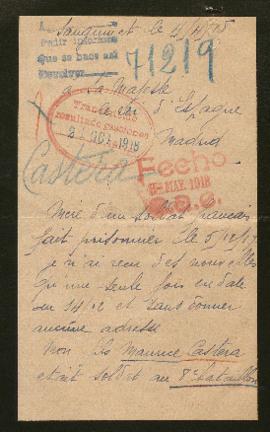 Sauguinet le 4/4/18
A
Pedir informes
Que se hace así
Devolver
71219
A Sa Majesté
le Roi d'Espagne
Madrid
Tras
resultado gestiones
2 OCT 1918
Fecho
MAY. 1918
Castéra
Mère d'un soldat français
fait prisonnier le 5/12/17
je n'ai reçu des nouvelles
qu'une seule fois en date
du 14/12 et sans donner
aucune adresse
Mon fils Maurice Castéra
était soldat au 8e bataillon